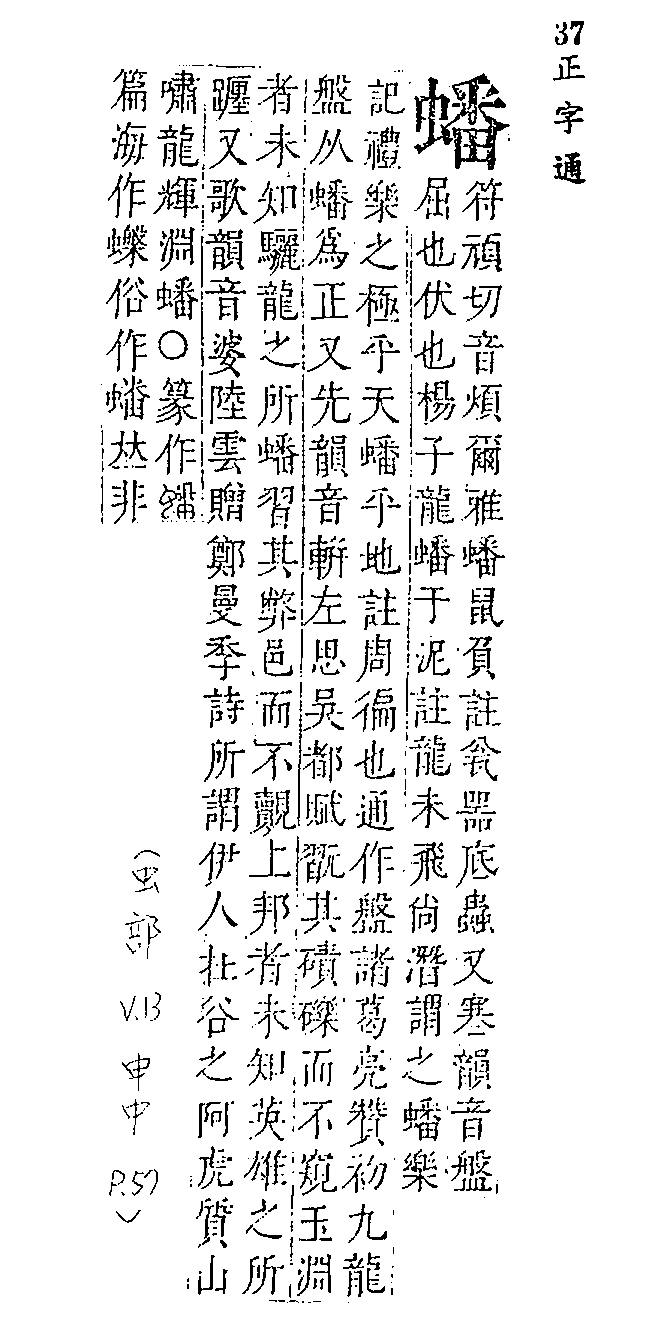 37正字通
蟠
符頑切音煩爾雅蟠鼠負註瓮器底蟲又寒韻音盤
屈也伏也楊子龍蟠于泥註龍未飛尙潛謂之蟠樂
記禮樂之極乎天蟠乎地註周徧也通作盤諸葛亮贊初九龍
盤从蟠爲正又先韻音軿左思吳都賦翫其磧礫而不窺玉淵
者未知驪龍之所蟠習其弊邑而不覿上邦者未知英雄之所
躔又歌韻音婆陸雲贈鄭曼季詩所謂伊人在谷之阿虎質山
嘯龍輝淵蟠○篆作
篇海作俗作𠀤非
(虫部 V.13 申中 P.57)